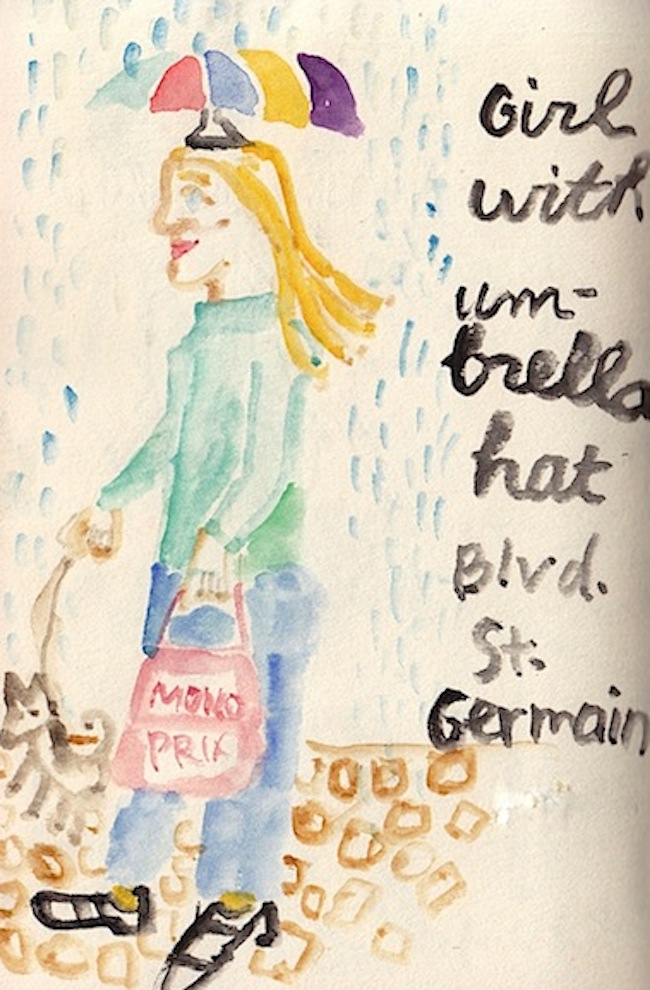 Girl
with
um-
brella
hat
Blvd.
St.
Germain
MONO
PRIX